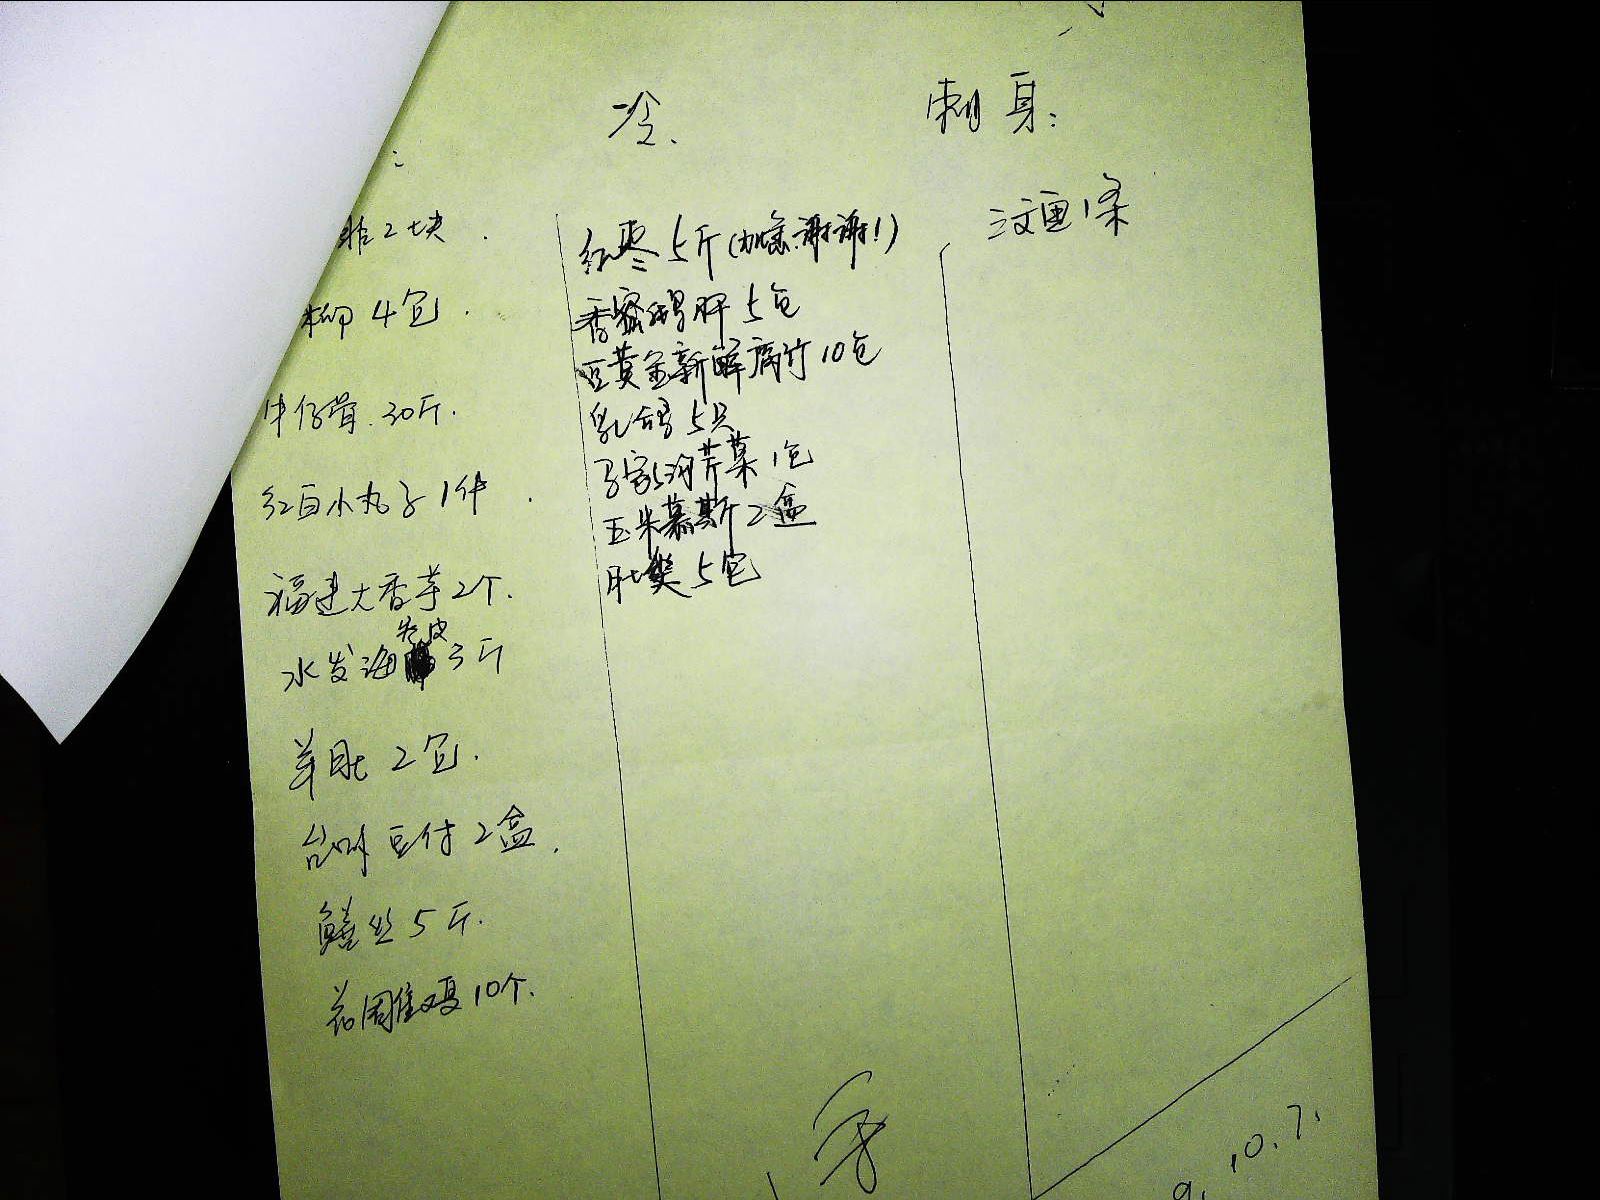 冷.
刺身:
2块.
柳 4包.
牛仔骨.30斤.
红白小丸子1件.
福建大香芋2个.
水发海参皮3斤
羊肚 2包.
台州豆付2盒.
鳝丝5斤.
花雕鸡10个.
红枣5斤(加急.谢谢!)
香 鹅肝5包
豆黄金新鲜腐竹10包
乳鸽5只
海芹菜1包
玉米慕斯2盒
肚 5包
三文鱼1条
9.10.7.